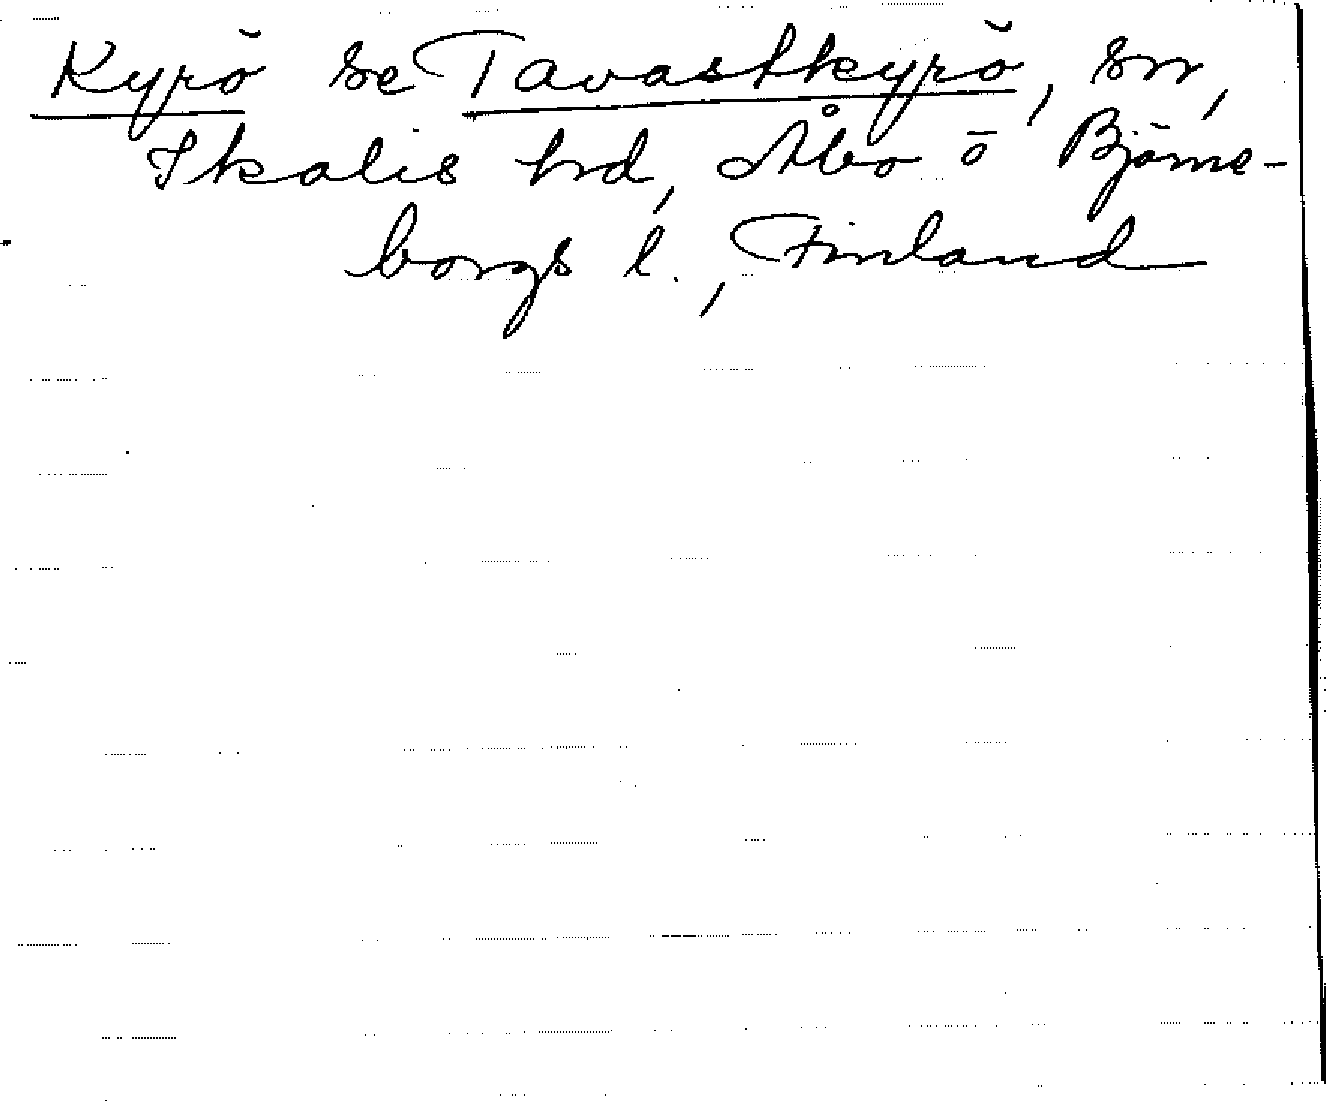 Kyrö se Tavastkyrö, sn,
Ikalis hd, Åbo o Björne-
borgs l., Finland